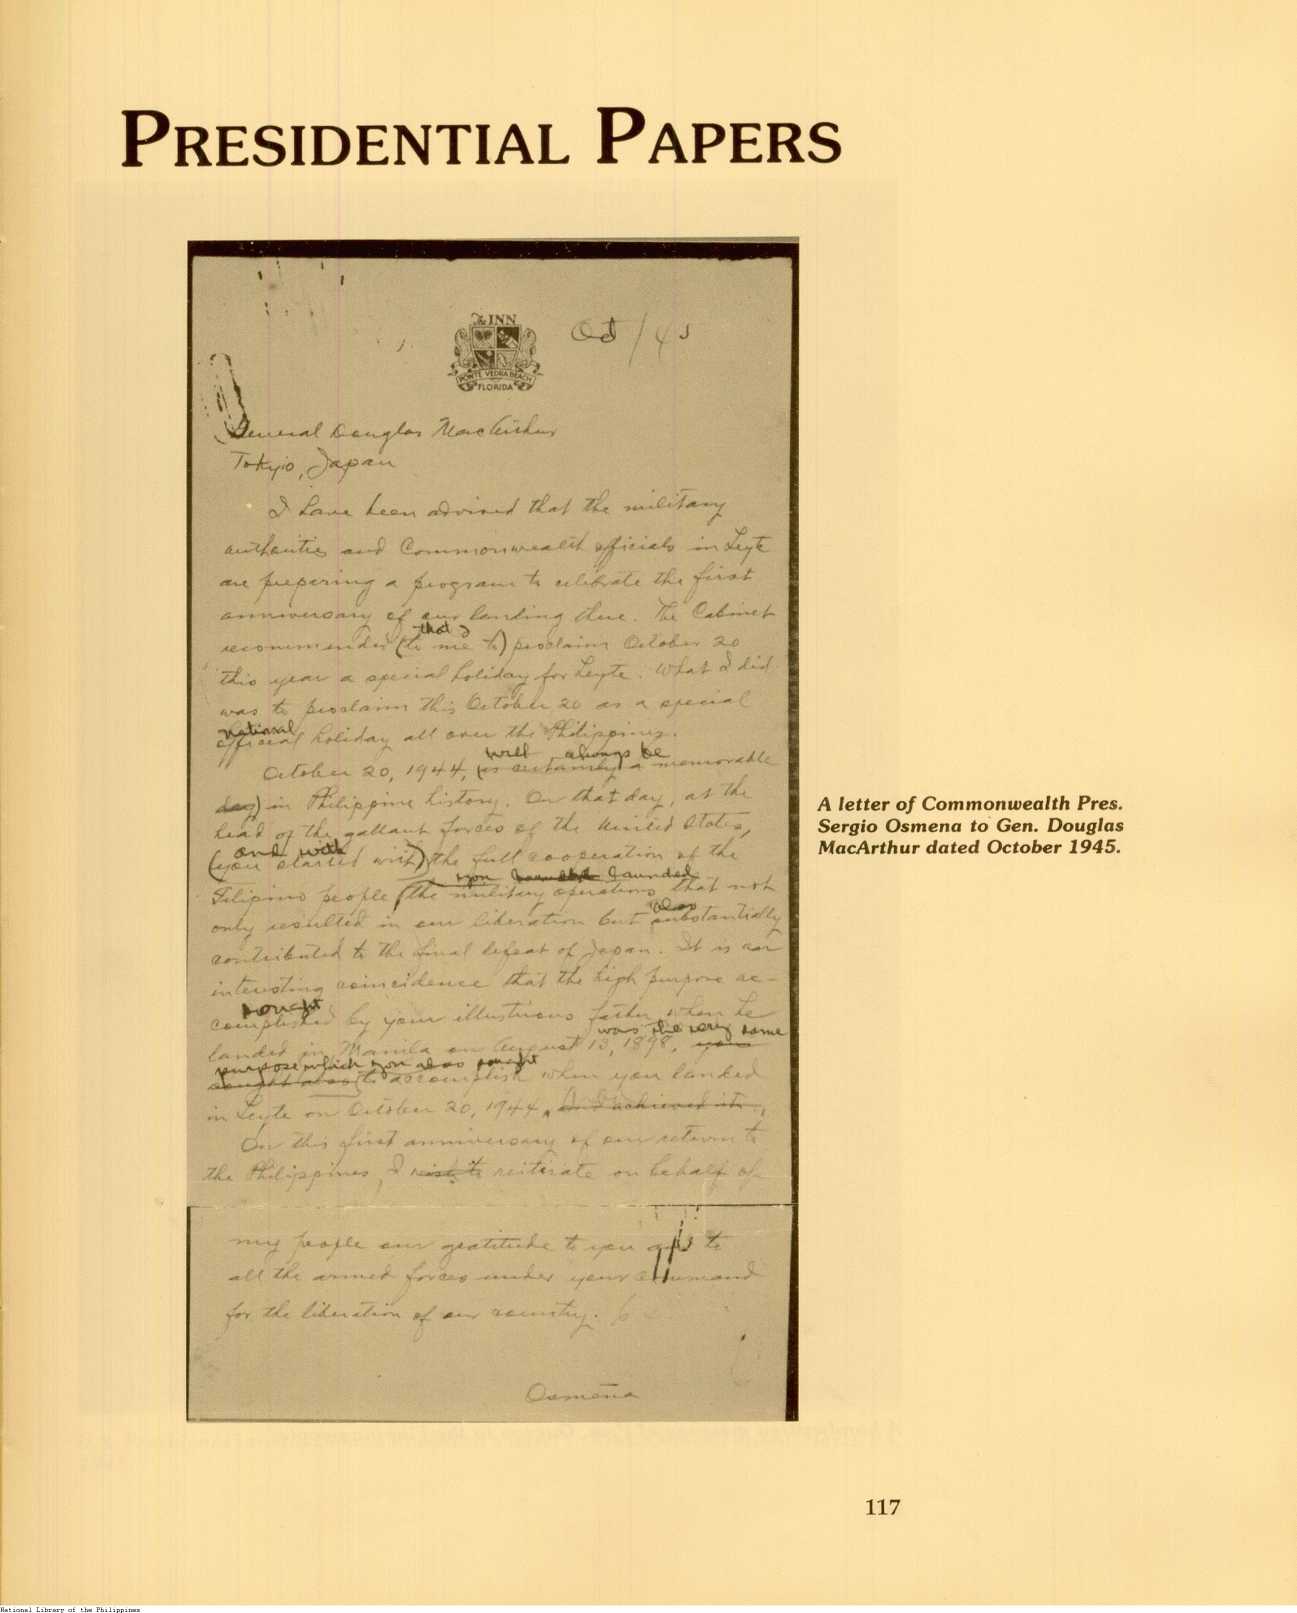 PRESIDENTIAL PAPERS
The INN
PONTE VEDRA BEACH
FLORIDA
Oct /45
General Douglas MacArthur
Tokyo, Japan
I have been advised that the military
authorities and Commonwealth officials in Leyte
are preparing a program to celebrate the first
anniversary of our landing there. The Cabinet
that I
recommended (to me to) proclaim October 20
this year a special holiday for Leyte. What I did
was to proclaim this October 20 as a special
national
official holiday all over the Philippines.
will always be
October 20, 1944, (is certainly a memorable
day) in Philippine history. On that day, at the
head of the gallant forces of the United States,
and with
(you started with) the full cooperation of the
you launched
Filipino people, the military operations that not
also
only resulted in our liberation but substantially
contributed to the final defeat of Japan. It is an
interesting coincidence that the high purpose ac-
sought
complished by your illustrious father when he
was the very same
landed in Manila on August 13, 1898, you
purpose which you also sought
sought also to accomplish when you landed
in Leyte on October 20, 1944, and achieved it.
On this first anniversary of our return to
the Philippines, I wish to reiterate on behalf of
my people our gratitude to you and to
all the armed forces under your command
for the liberation of our country.
Osmeña
A letter of Commonwealth Pres.
Sergio Osmena to Gen. Douglas
MacArthur dated October 1945.
117
National Library of the Philippines